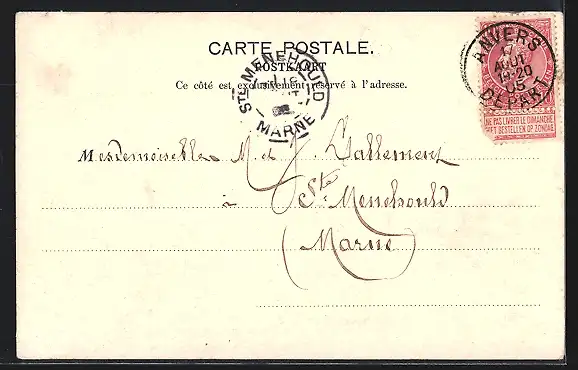 CARTE POSTALE.
POSTKAART
Ce côté est exclusivement réservé à l'adresse.
STE MENEHOULD
MARNE
ANVERS
17
AOUT
19-20
05
DEPART
NE PAS LIVRER LE DIMANCHE
NIET BESTELLEN OP ZONDAG
Mesdemoiselles M. et J. Lallement
à Ste Menehould
(Marne)